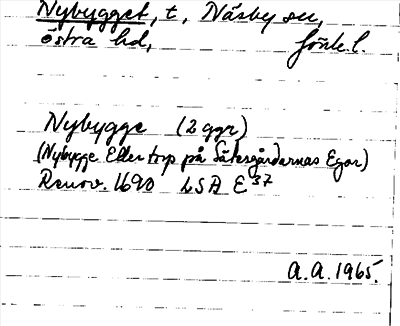 Nybygget, t, Näsby sn,
östra hd, Jönk. l.
Nybygge (2 ggr)
(Nybygge Eller torp på Sätesgårdarnas Egor)
Renov. 1690 LSA E 37
A.A. 1965.